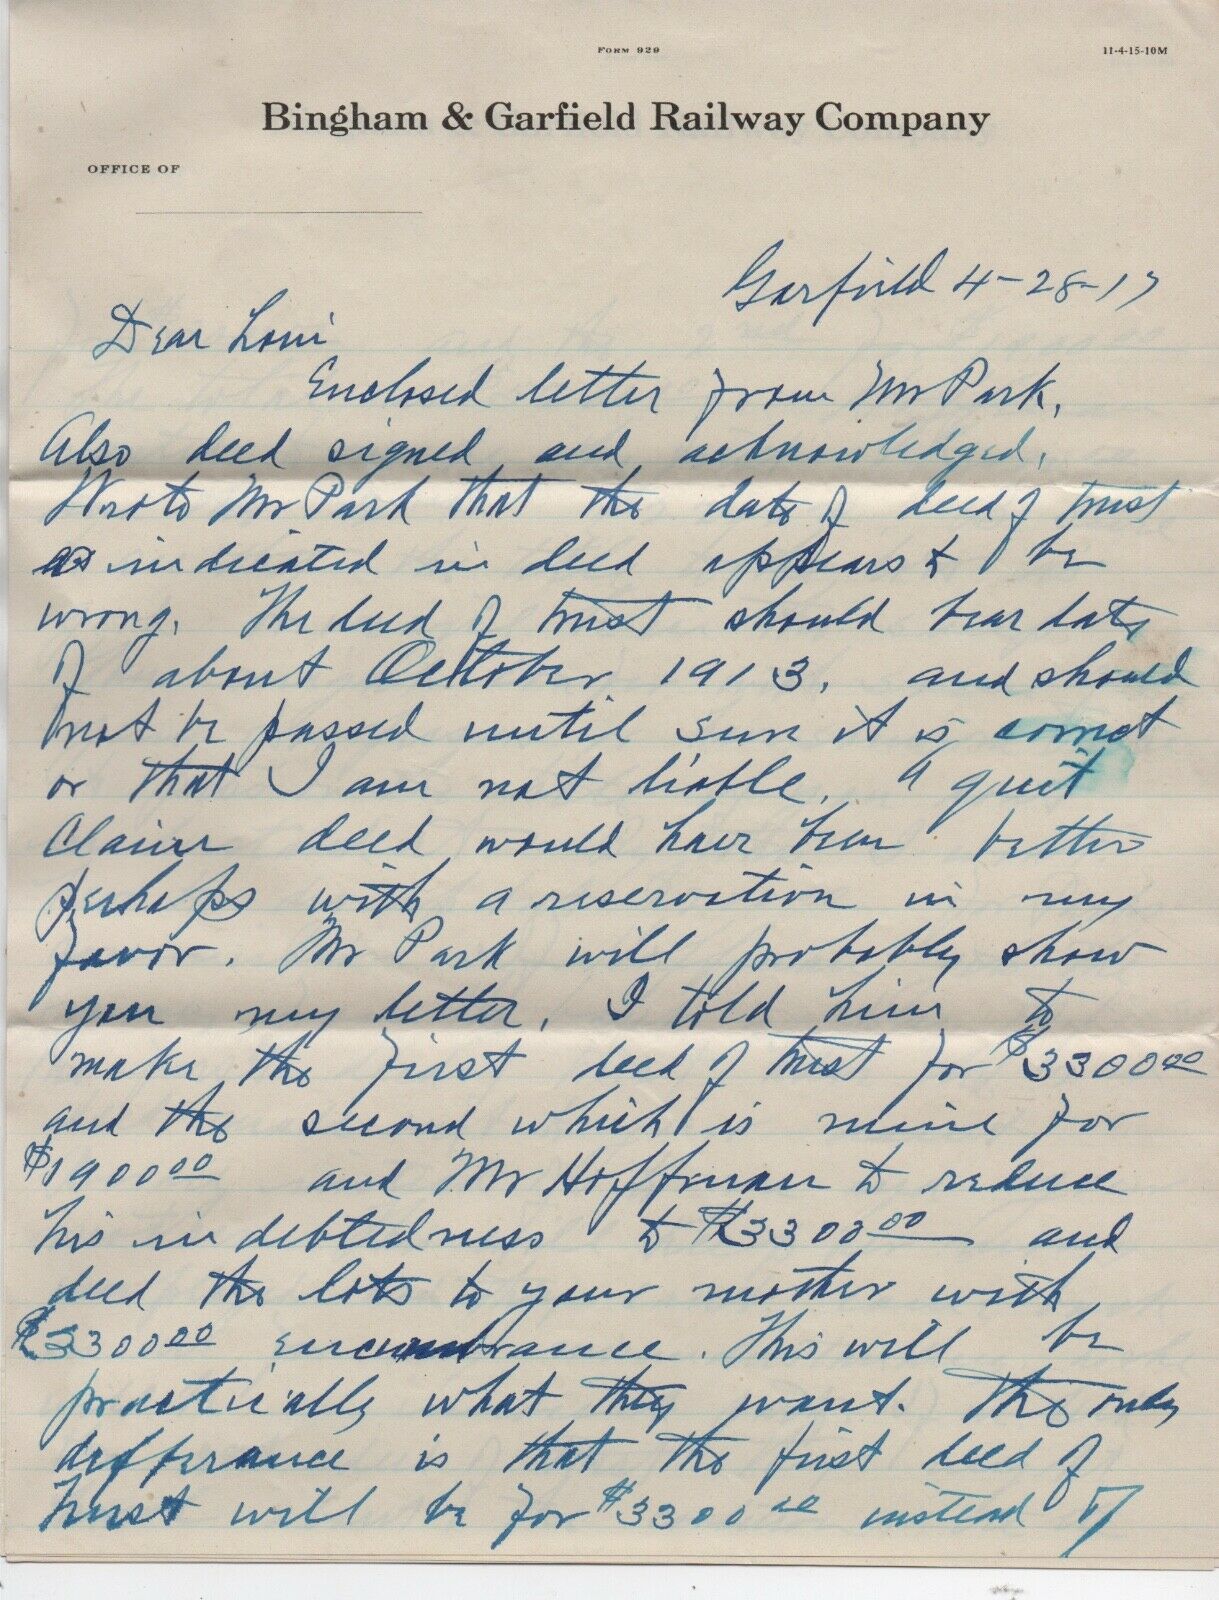 FORM 929
11-4-15-10M
Bingham & Garfield Railway Company
OFFICE OF
Garfield 4-28-17
Dear Loui
Enclosed letter from Mr Park.
Also deed signed and acknowledged.
Wrote Mr Park that the date of deed of trust
as indicated in deed appears to be
wrong. The deed of trust should bear date
of about October 1913. and should
not be passed until sure it is correct
or that I am not liable. A quit
Claim deed would have been better
perhaps with a reservation in my
favor. Mr Park will probably show
you my letter. I told him to
make the first deed of trust for $3300.00
and the second which is mine for
$1900.00 and Mr Hoffman to reduce
his indebtedness to $3300.00 and
deed the lots to your mother with
$3300.00 encumbrance. This will be
practically what they want. The only
differance is that the first deed of
trust will be for $3300.00 instead of